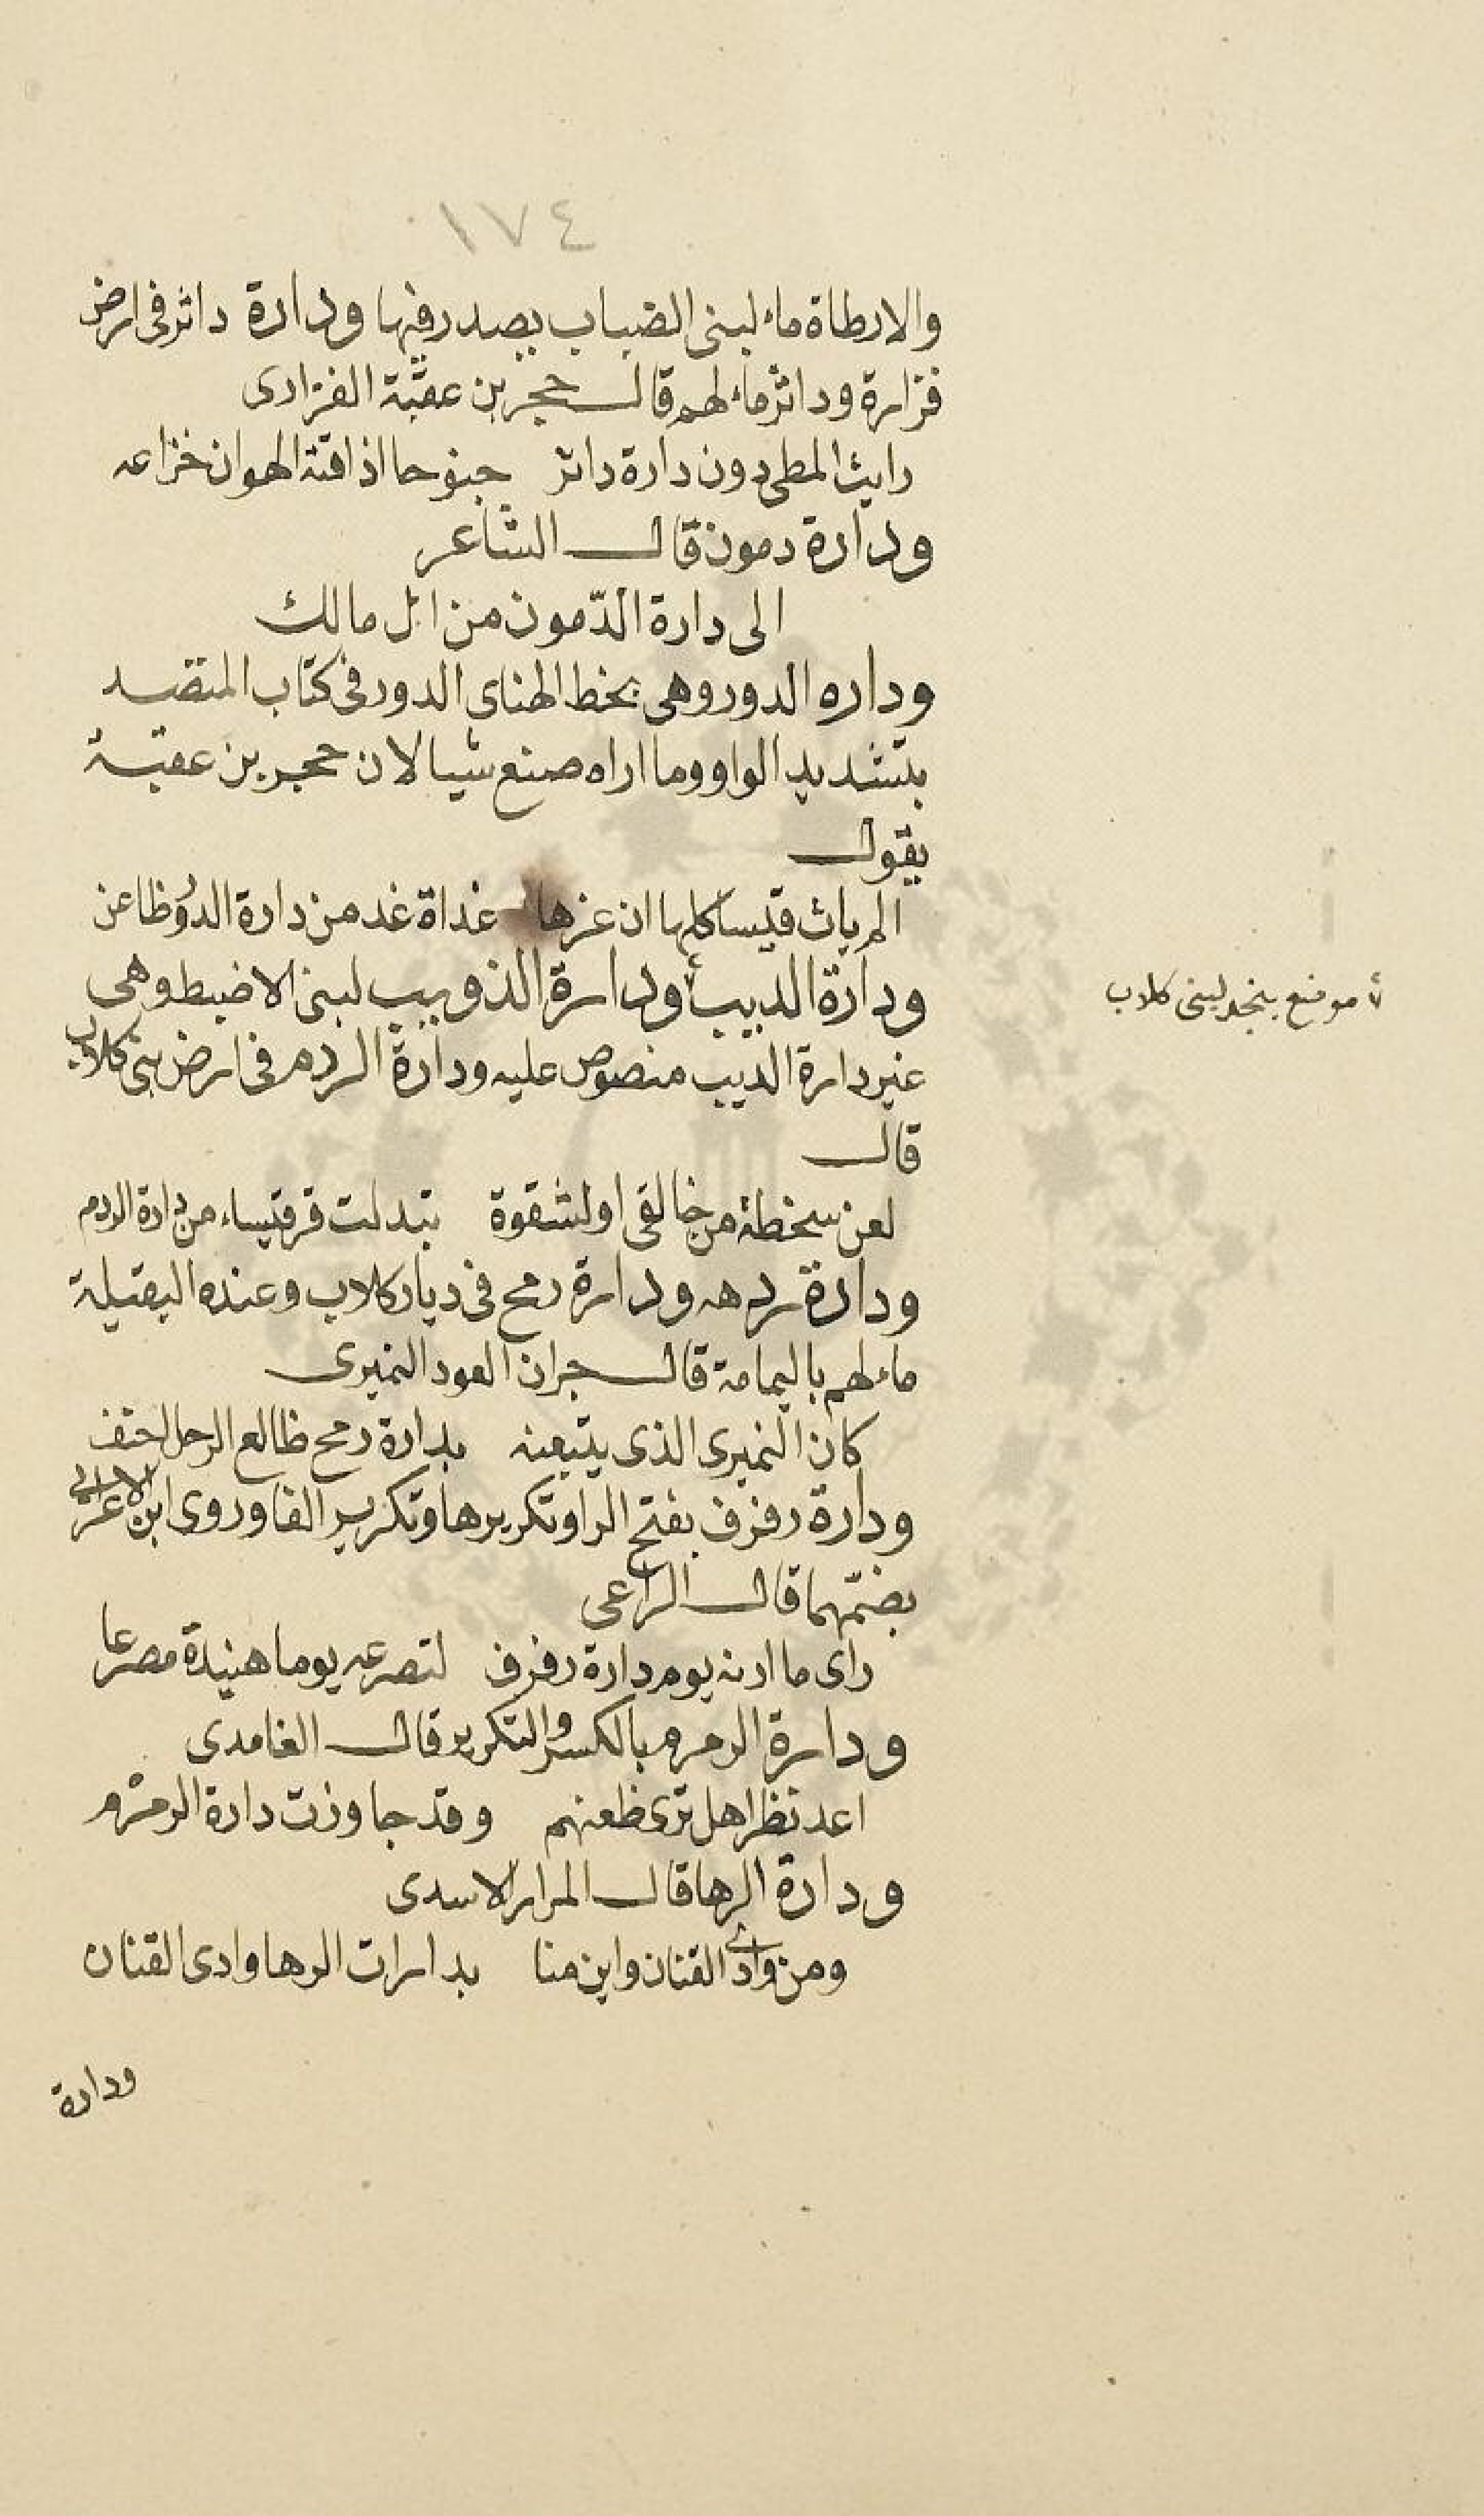 ١٧٤
والارطاة ماء لبنى الضباب بصدر فيها ودارة داثر فى ارض
فزارة وداثر ماء لهم قال حجر بن عقبة الفزارى
رايت المطى دون دارة داثر جنوحا اذاقته الهوان خزاعه
ودارة دمون قال الشاعر
الى دارة الدّمون من ال مالك
وداره الدور وهى بخط الهناى الدور فى كتاب المنضد
بتشديد الواو وما اراه صنع شيا لان حجر بن عقبة
يقول
الم يات قيسا كلها ان عزها غداة غد من دارة الدور ظاعن
ودارة الديب ودارة الذويبب لبنى الاضبط وهى
موضع بنجد لبنى كلاب
غير دارة الديب منصوص عليه ودارة الردم فى ارض بنى كلاب
قال
لعن سخطة من خالقى او لشقوة تبدلت قرقيساء من دارة الردم
ودارة ردهه ودارة رمح فى ديار كلاب وعنده البقيلة
ماء لهم باليمامة قال جران العود النميرى
كان النميرى الذى يتبعنه بدارة رمح ظالع الرحل احنف
ودارة رفرف بفتح الرا وتكريرها وتكرير الفا وروى ابن الاعرابى
بضمّهما قال الراعى
راى ما ارته يوم دارة رفرف لتصرعه يوما هنيدة مصرعا
ودارة الرمرم بالكسر والتكرير قال الغامدى
اعد نظرا هل ترى ظعنهم وقد جاوزت دارة الرمرم
ودارة الرها قال المرار الاسدى
ومن وادى القنان واين منا بدارات الرها وادى القنان
ودارة